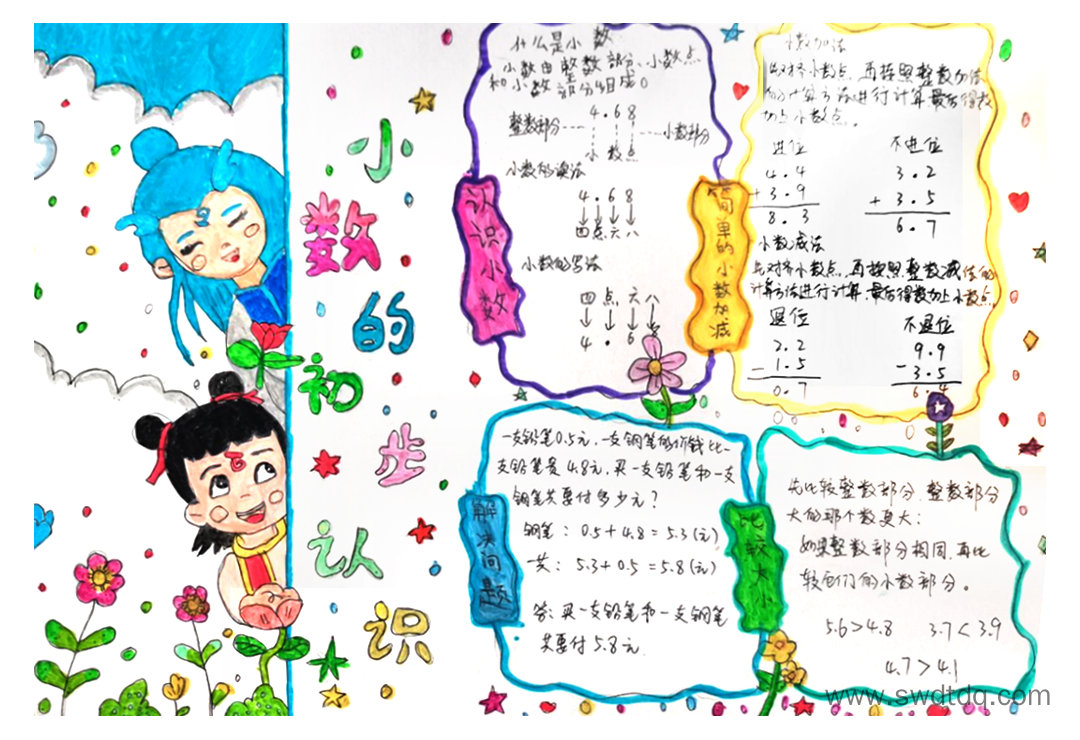 小数的初步认识
认识小数
什么是小数
小数由整数部分、小数点
和小数部分组成。
4.68
整数部分 小数部分
小数点
小数的读法
4.68
四点六八
小数的写法
四点六八
4.68
简单的小数加减
小数加法
点对齐小数点,再按照整数加法
的计算方法进行计算最后得数
加上小数点。
进位 不进位
4.4 3.2
+3.9 +3.5
8.3 6.7
小数减法
点对齐小数点,再按照整数减法的
计算方法进行计算,最后得数加上小数点
退位 不退位
2.2 9.9
-1.5 -3.5
0.7 6.4
解决问题
一支铅笔0.5元,一支钢笔的价钱比一
支铅笔贵4.8元,买一支铅笔和一支
钢笔共要付多少元?
钢笔:0.5+4.8=5.3(元)
一共:5.3+0.5=5.8(元)
答:买一支铅笔和一支钢笔
共要付5.8元.
比较大小
先比较整数部分,整数部分
大的那个数更大;
如果整数部分相同,再比
较它们的小数部分。
5.6>4.8 3.7<3.9
4.7>4.1
www.swdtdq.com